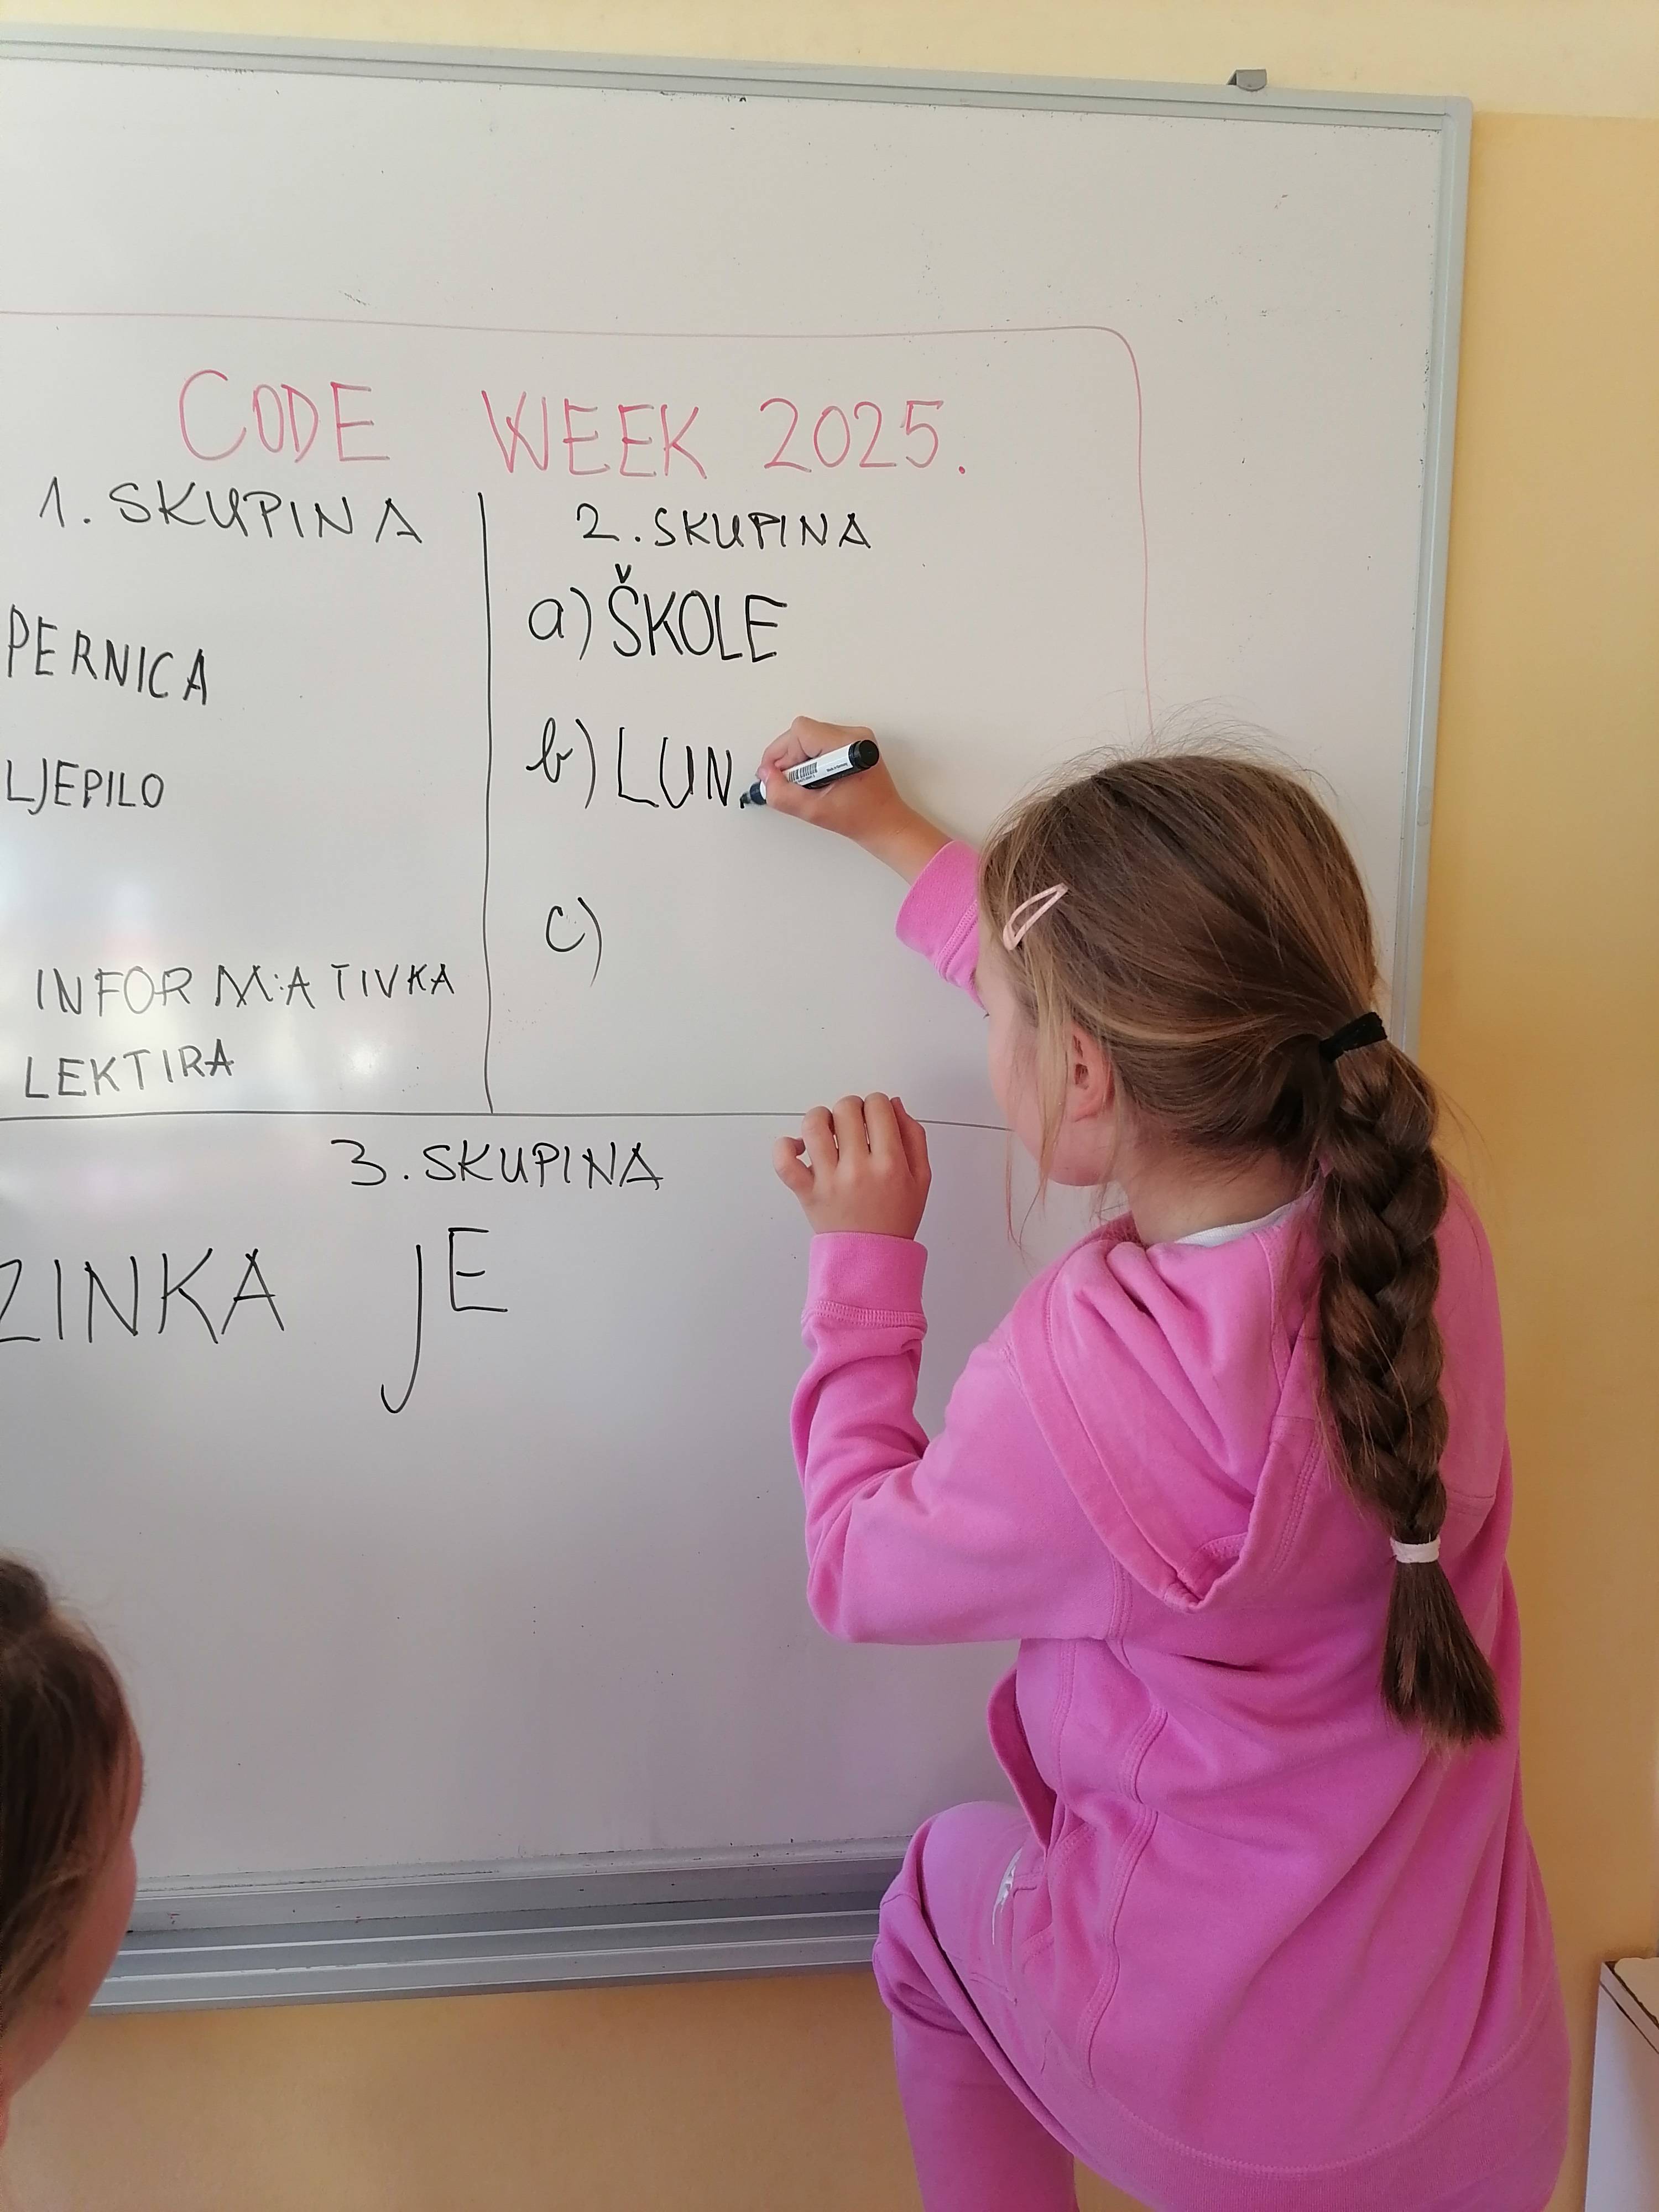 CODE WEEK 2025.
1. SKUPINA
PERNICA
LJEPILO
INFORMATIVKA
LEKTIRA
2. SKUPINA
a) ŠKOLE
b) LUN
c)
3. SKUPINA
ZINKA JE